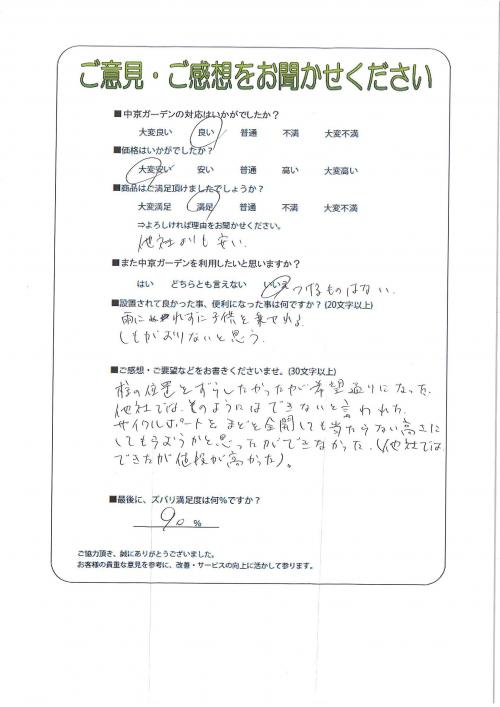 ご意見・ご感想をお聞かせください
■中京ガーデンの対応はいかがでしたか？
大変良い 良い 普通 不満 大変不満
■価格はいかがでしたか？
大変安い 安い 普通 高い 大変高い
■商品はご満足頂けましたでしょうか？
大変満足 満足 普通 不満 大変不満
⇒よろしければ理由をお聞かせください。
他社よりも安い
■また中京ガーデンを利用したいと思いますか？
はい どちらとも言えない いいえ つけるものはない.
■設置されて良かった事、便利になった事は何ですか？(20文字以上)
雨にぬれずに子供を乗せれる.
しもがおりないと思う.
■ご感想・ご要望などをお書きくださいませ。(30文字以上)
柱の位置をずらしたかったが希望通りになった.
他社では、そのようにはできないと言われた.
サイクルポートをまどを全開しても当たらない高さに
してもらおうかと思ったができなかった.(他社では
できたが値段が高かった)。
■最後に、ズバリ満足度は何％ですか？
90 %
ご協力頂き、誠にありがとうございました。
お客様の貴重な意見を参考に、改善・サービスの向上に活かして参ります。